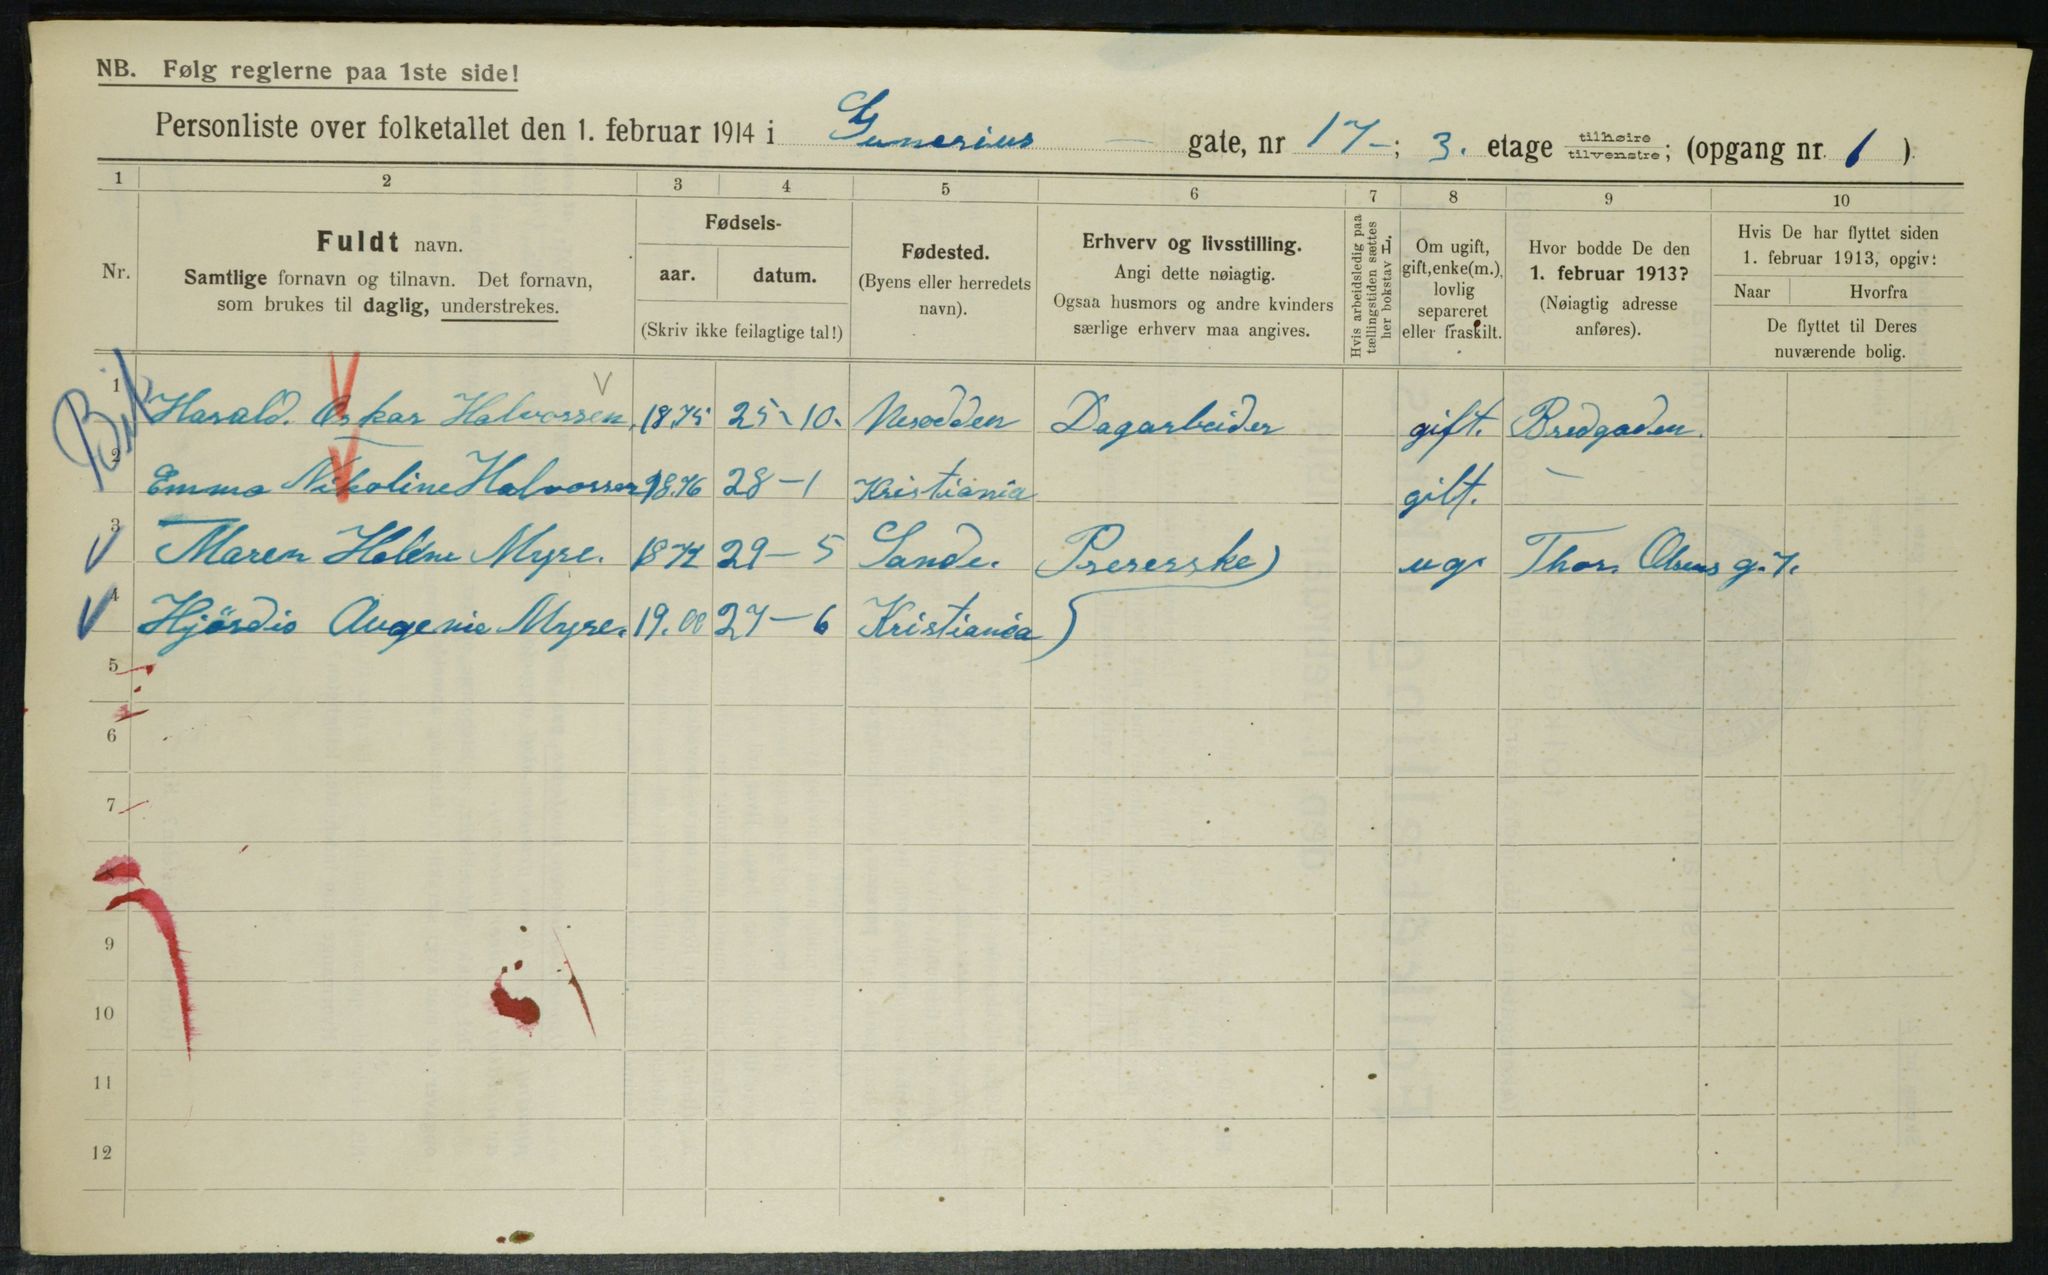 NB. Følg reglerne paa 1ste side!
Personliste over folketallet den 1. februar 1914 i Gunerius — gate, nr 17-; 3. etage tilhøire tilvenstre; (opgang nr. 1 ).
1 2 3 4 5 6 7 8 9 10
Nr.
Fuldt navn.
Samtlige fornavn og tilnavn. Det fornavn,
som brukes til daglig, understrekes.
Fødsels-
aar. datum.
(Skriv ikke feilagtige tal!)
Fødested.
(Byens eller herredets
navn).
Erhverv og livsstilling.
Angi dette nøiagtig.
Ogsaa husmors og andre kvinders
særlige erhverv maa angives.
Hvis arbeidsledig paa
tællingstiden sættes
her bokstav L.
Om ugift,
gift, enke(m.),
lovlig
separeret
eller fraskilt.
Hvor bodde De den
1. februar 1913?
(Nøiagtig adresse
anføres).
Hvis De har flyttet siden
1. februar 1913, opgiv:
Naar Hvorfra
De flyttet til Deres
nuværende bolig.
1 Harald. Oskar Halvorssen. 1875 25-10. Nesodden Dagarbeider gift. Bredgaden.
2 Emma Nikoline Halvorssen 1876 28-1 Kristiania gift. —
3 Maren Heléne Myre. 1872 29-5 Sande. Presserske ug. Thor Olsens g. 7.
4 Hjördis Augenie Myre. 19.00 27-6 Kristiania
5
6
7
8
9
10
11
12